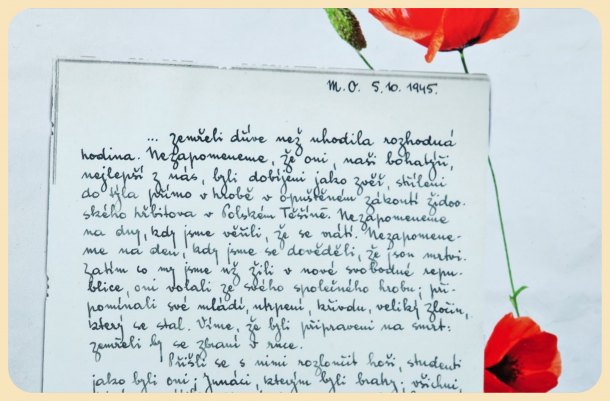 M. O. 5. 10. 1945.
... zemřeli dříve než uhodila rozhodná
hodina. Nezapomeneme, že oni, naši bohatýři,
nejlepší z nás, byli dobíjeni jako zvěř, stříleni
do týla přímo v hrobě v opuštěném zákoutí židov-
ského hřbitova v Polském Těšíně. Nezapomeneme
na dny, kdy jsme věřili, že se vrátí. Nezapomene-
me na den, kdy jsme se dověděli, že jsou mrtvi.
Zatím co my jsme už žili v nové svobodné repu-
blice, oni volali ze svého společného hrobu; při-
pomínali své mládí, utrpení, křivdu, veliký zločin,
který se stal. Víme, že byli připraveni na smrt:
zemřeli by se zbraní v ruce.
Přišli se s nimi rozloučit hoši, studenti
jako byli oni; Junáci, kterým byli bratry; všichni,